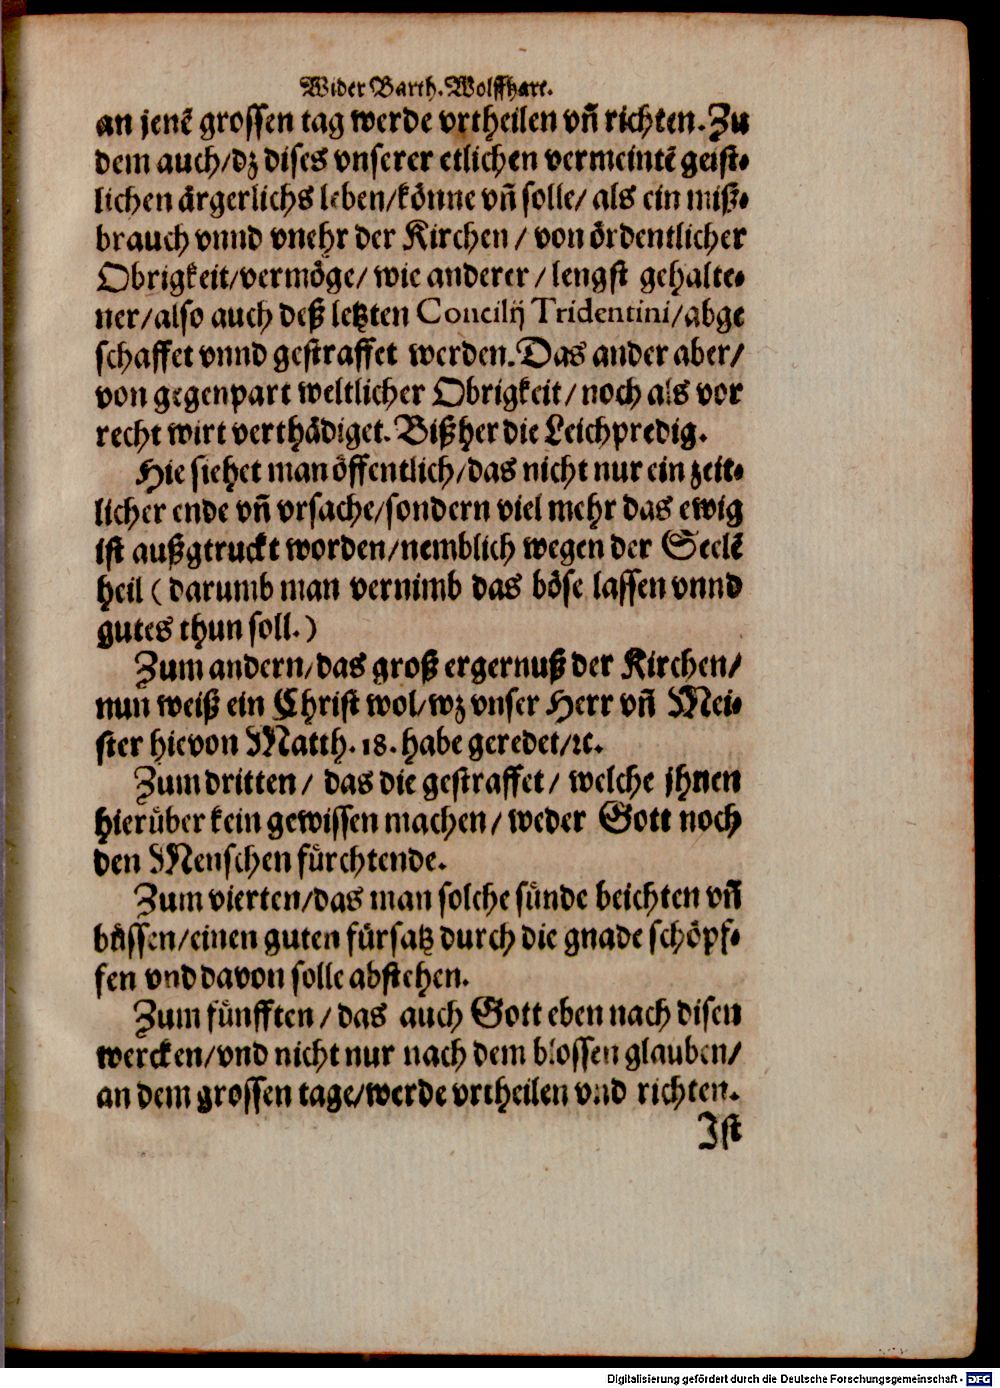 Wider Barth. Wolffhart.
an jenē grossen tag werde vrtheilen vñ richten. Zu
dem auch/dz dises vnserer etlichen vermeintē geist⸗
lichen ärgerlichs leben/könne vñ solle/ als ein miß⸗
brauch vnnd vnehr der Kirchen / von ördentlicher
Obrigkeit/vermöge/ wie anderer / lengst gehalte⸗
ner/also auch deß letzten Concilij Tridentini/abge
schaffet vnnd gestraffet werden. Das ander aber/
von gegenpart weltlicher Obrigkeit/ noch als vor
recht wirt verthädiget. Bißher die Leichpredig.
Hie siehet man öffentlich/das nicht nur ein zeit⸗
licher ende vñ vrsache/sondern viel mehr das ewig
ist außgtruckt worden/nemblich wegen der Seelē
heil ( darumb man vernimb das böse lassen vnnd
gutes thun soll. )
Zum andern/das groß ergernuß der Kirchen/
nun weiß ein Christ wol/wz vnser Herr vñ Mei⸗
ster hievon Matth. 18. habe geredet/ꝛc.
Zum dritten/ das die gestraffet/ welche jhnen
hierüber kein gewissen machen/ weder Gott noch
den Menschen fürchtende.
Zum vierten/das man solche sünde beichten vñ
büssen/einen guten fürsatz durch die gnade schöpf⸗
fen vnd davon solle abstehen.
Zum fünfften / das auch Gott eben nach disen
wercken/vnd nicht nur nach dem blossen glauben/
an dem grossen tage/werde vrtheilen vnd richten.
Ist
Digitalisierung gefördert durch die Deutsche Forschungsgemeinschaft - DFG